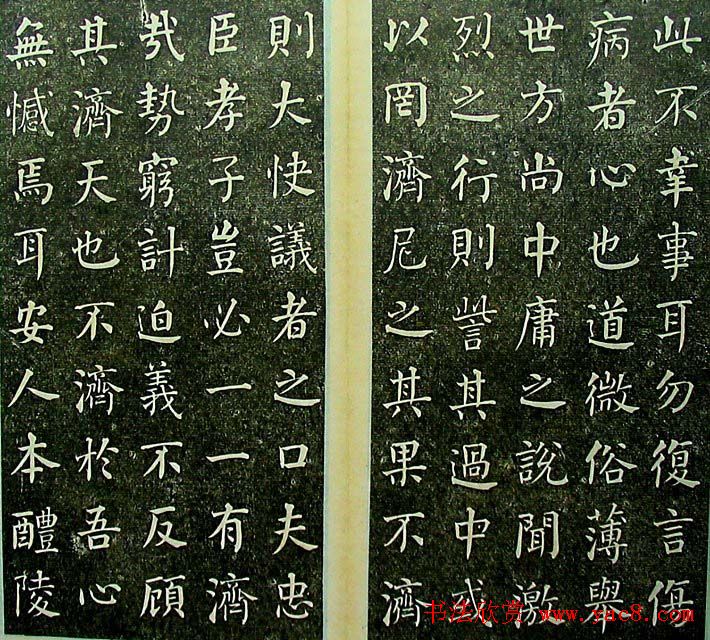 此不幸事耳勿復言傷
病者心也道微俗薄舉
世方尚中庸之說聞激
烈之行則訾其過中或
以罔濟尼之其果不濟
則大快議者之口夫忠
臣孝子豈必一一有濟
哉勢窮計迫義不反顧
其濟天也不濟於吾心
無憾焉耳安人本醴陵
书法欣赏 www.yac8.com